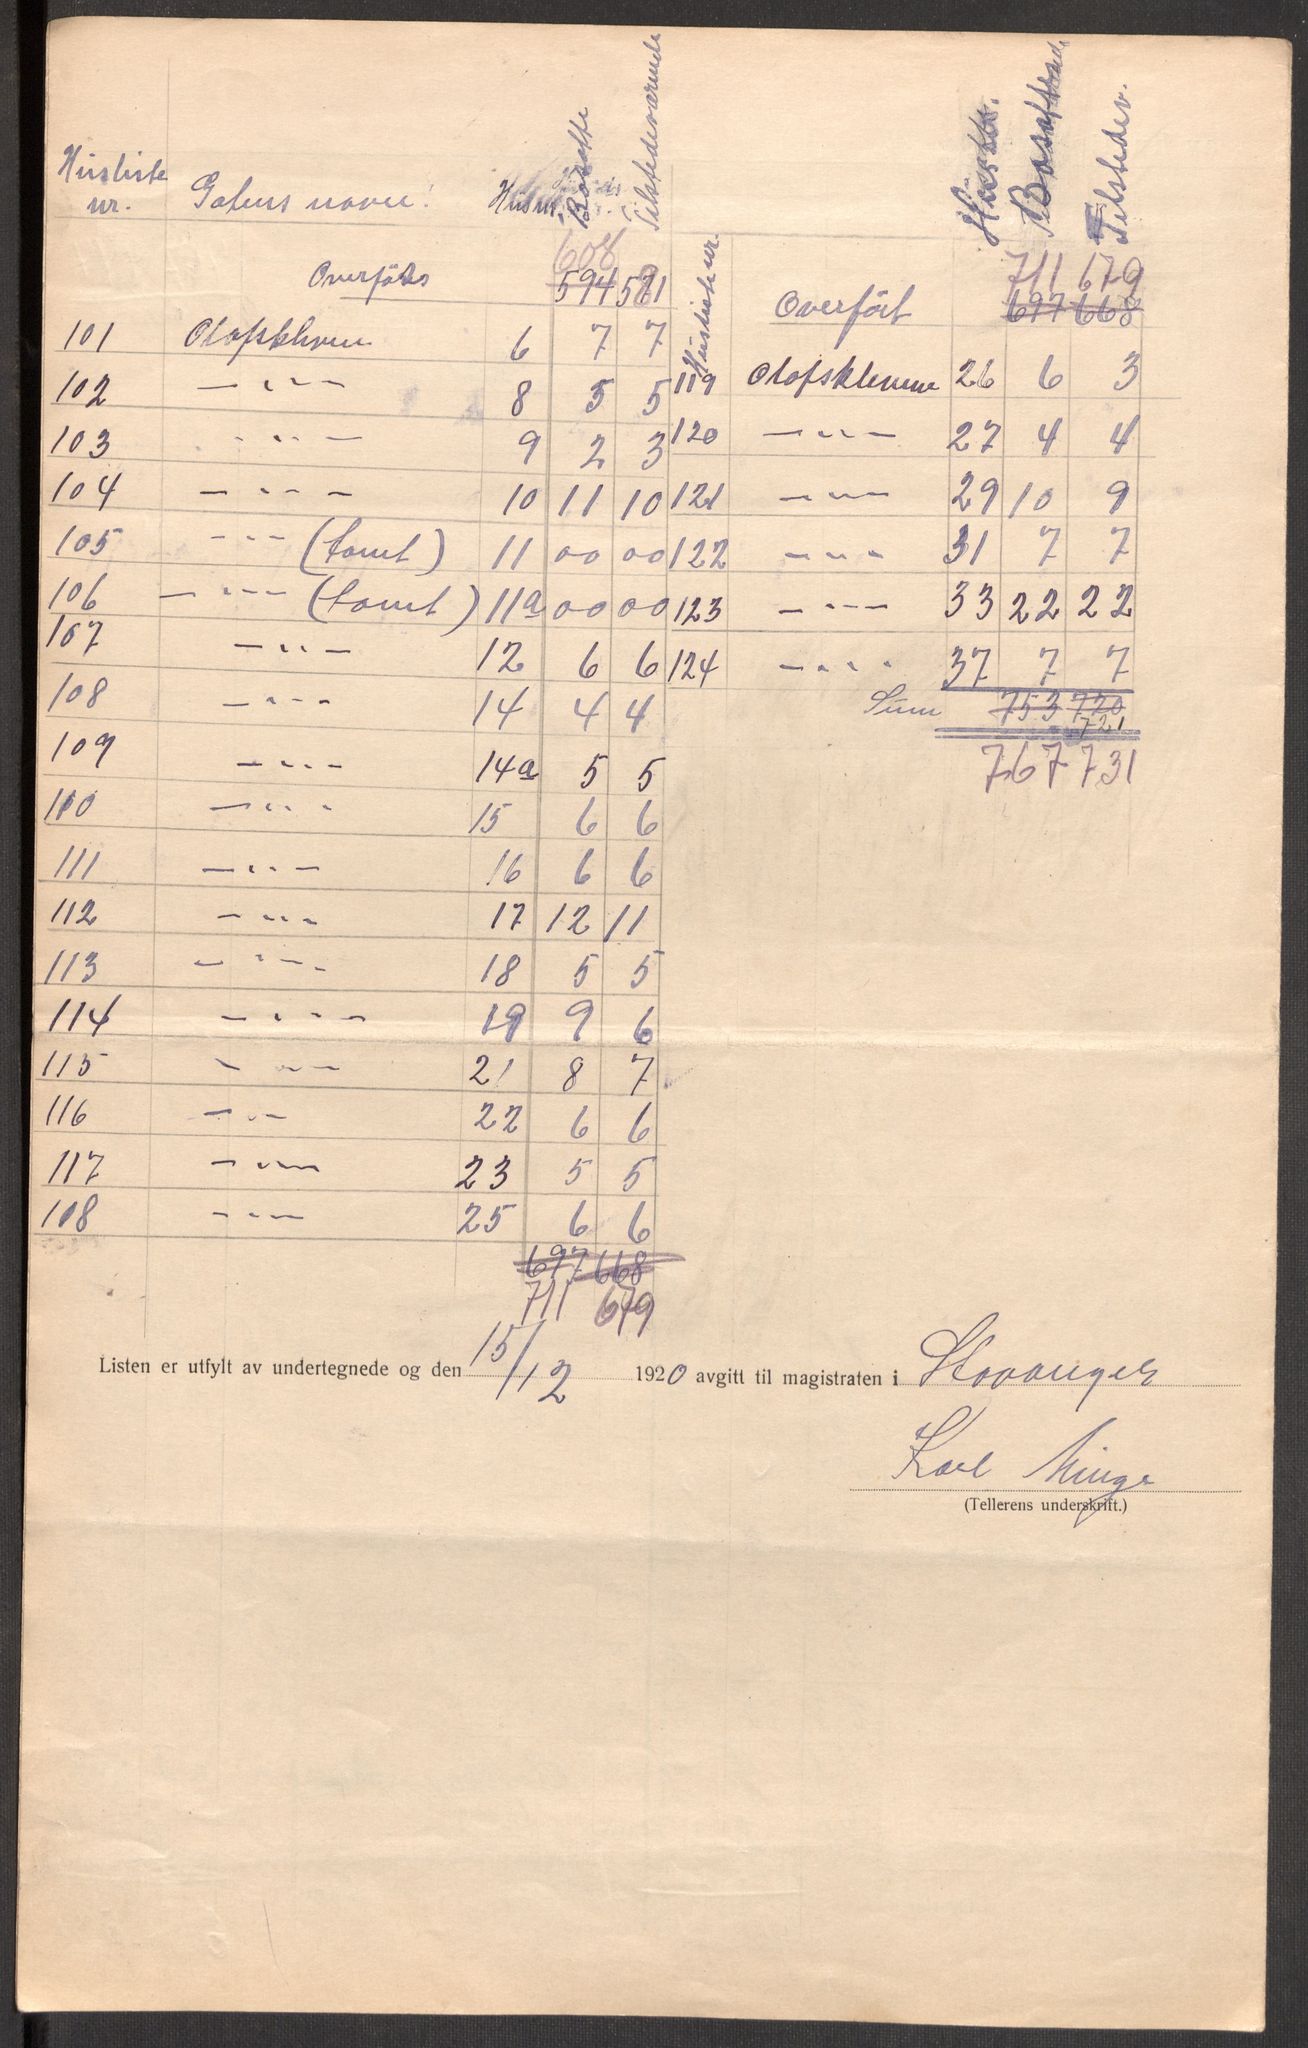 Husliste nr. Gatens navn: Husnr. Bosatte Tilstedeværende
608
Overføres 594 581
101 Olafskleven 6 7 7
102 — " " — 8 5 5
103 " " " — 9 2 3
104 — " " — 10 11 10
105 " " — (tomt) 11 00 00
106 — " " — (tomt) 11a 00 00
107 — " " — 12 6 6
108 — " " — 14 4 4
109 — " " — 14a 5 5
110 — " " " 15 6 6
111 — " " — 16 6 6
112 — " " — 17 12 11
113 — " " — 18 5 5
114 — " " — 19 9 6
115 — " " — 21 8 7
116 — " — 22 6 6
117 — " " — 23 5 5
108 — " " — 25 6 6
697 668
711 679
Husliste nr. Husnr. Bosatte Tilstedev.
711 679
Overført 697 668
119 Olafsklevene 26 6 3
120 — " " — 27 4 4
121 — " " — 29 10 9
122 — " " — 31 7 7
123 — " " — 33 22 22
124 — " " " 37 7 7
Sum 753 720
721
767 731
Listen er utfylt av undertegnede og den 15/12 1920 avgitt til magistraten i Stavanger
Karl Minge
(Tellerens underskrift.)